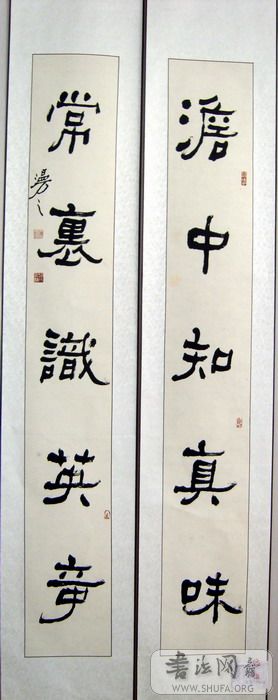 澹中知真味
常裏識英奇
漫之
書法网
WWW.SHUFA.ORG